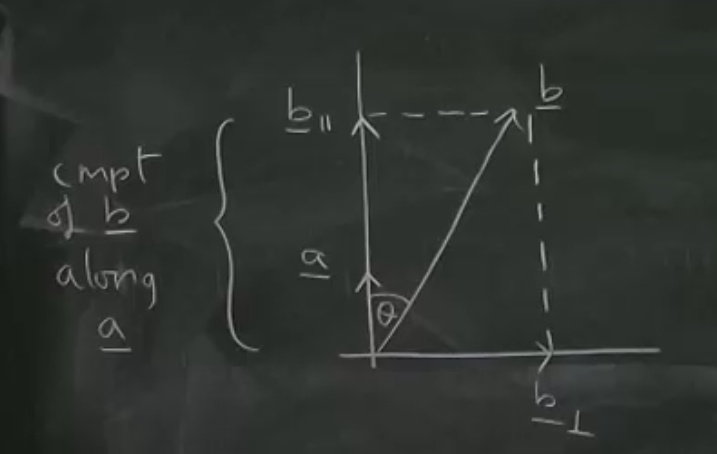 cmpt
of b
along
a
b∥
b
a
θ
b⊥